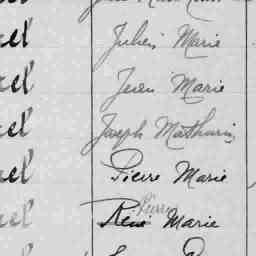 el Julien Marie
el Jean Marie
el Joseph Mathurin
el Pierre Marie
el Pierre
René Marie